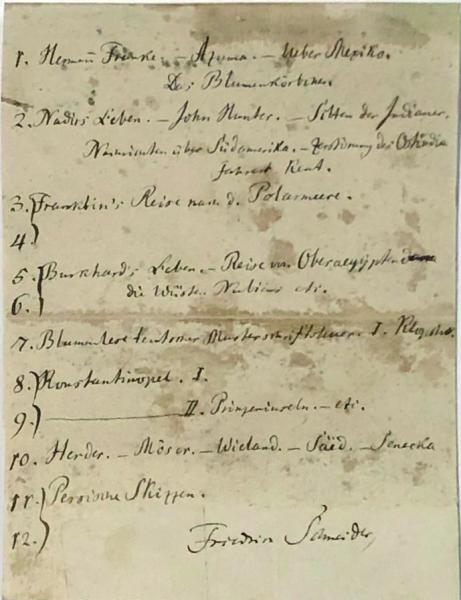 1. Hermann Franke. – Azuma. – Ueber Mexiko.
Das Blumenkörbchen.
2. Nadirs Leben. – John Hunter. – Sitten der Indianer.
Nachrichten über Südamerika. – Zerstörung des Ostindia
fahrers Kent.
3. Franklin's Reise nach d. Polarmeere.
4.
5. Burkhard's Leben – Reise von Oberaegypten
6. die Wüsten Nubiens etc.
7. Blumenlese teutscher Musterschriftsteller. I. Klopstock.
8. Konstantinopel. I.
9. ——— II. Prinzeninseln. – etc.
10. Herder. – Möser. – Wieland. – Säid. – Seneca
11. Persische Skizzen.
12.
Friedrich Schneider